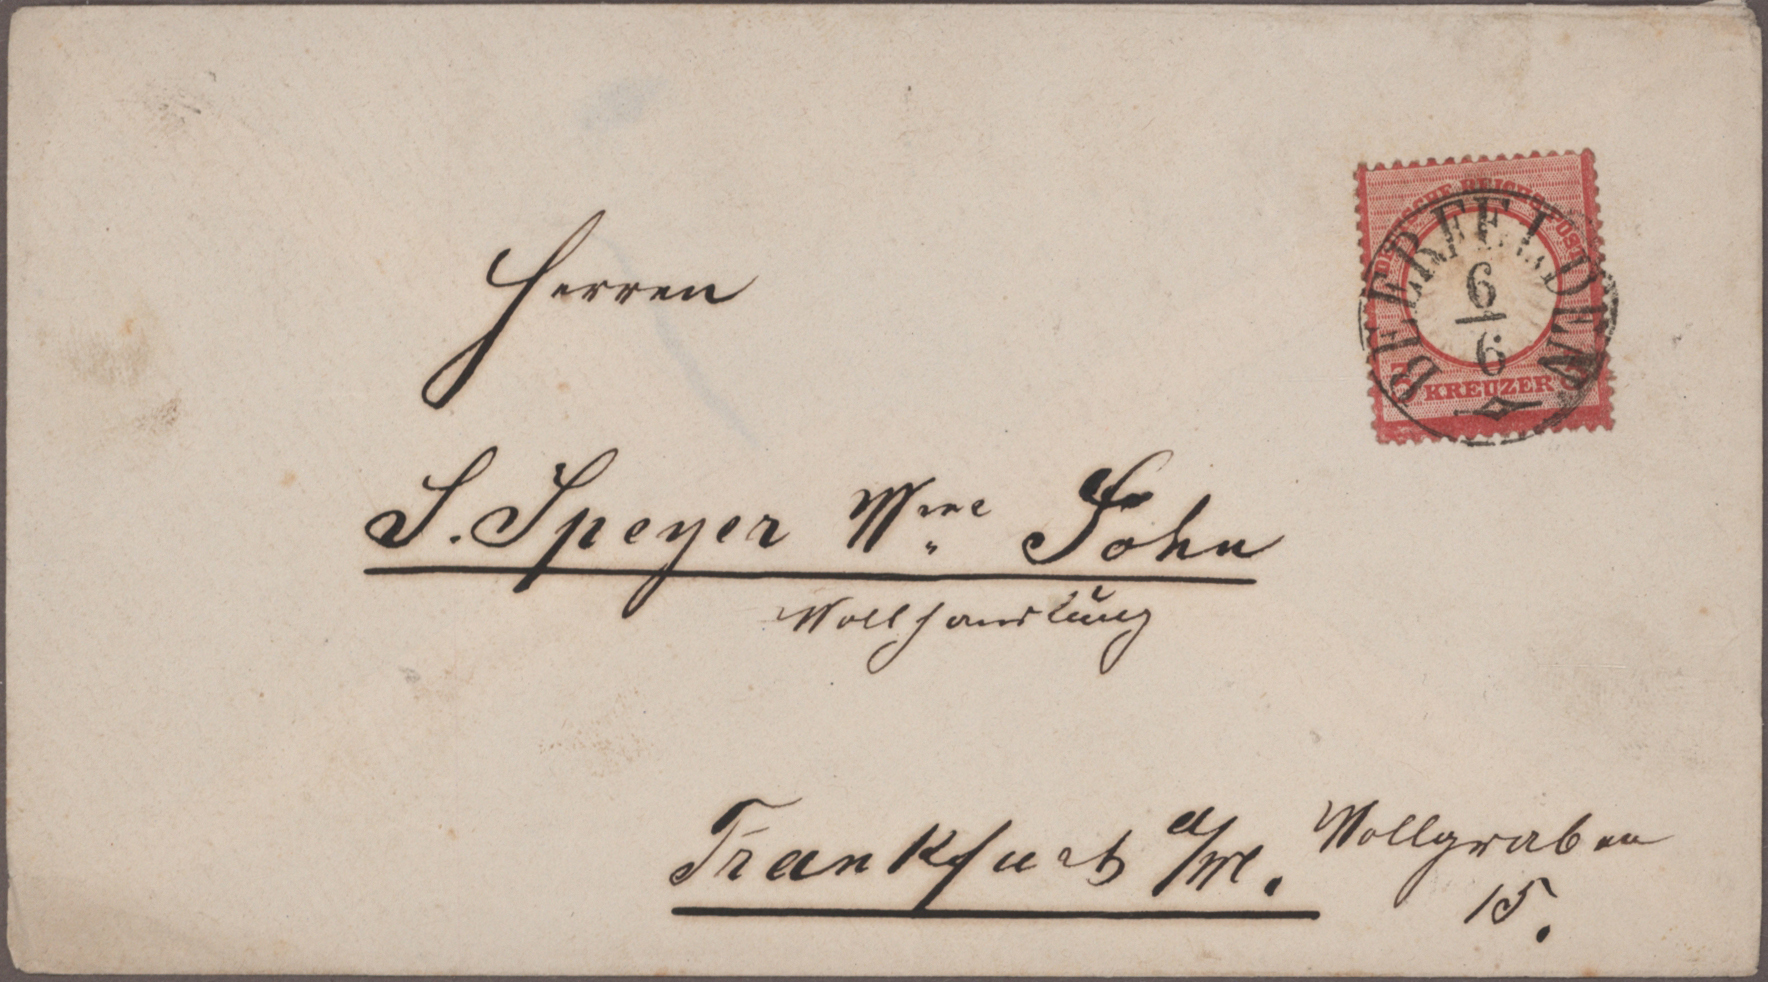 DEUTSCHE REICHS-POST
BEERFELDEN
6
6
3 KREUZER 3
Herren
S. Speyer Wwe Sohn
Wollhandlung
Frankfurt a/M. Wollgraben
15.